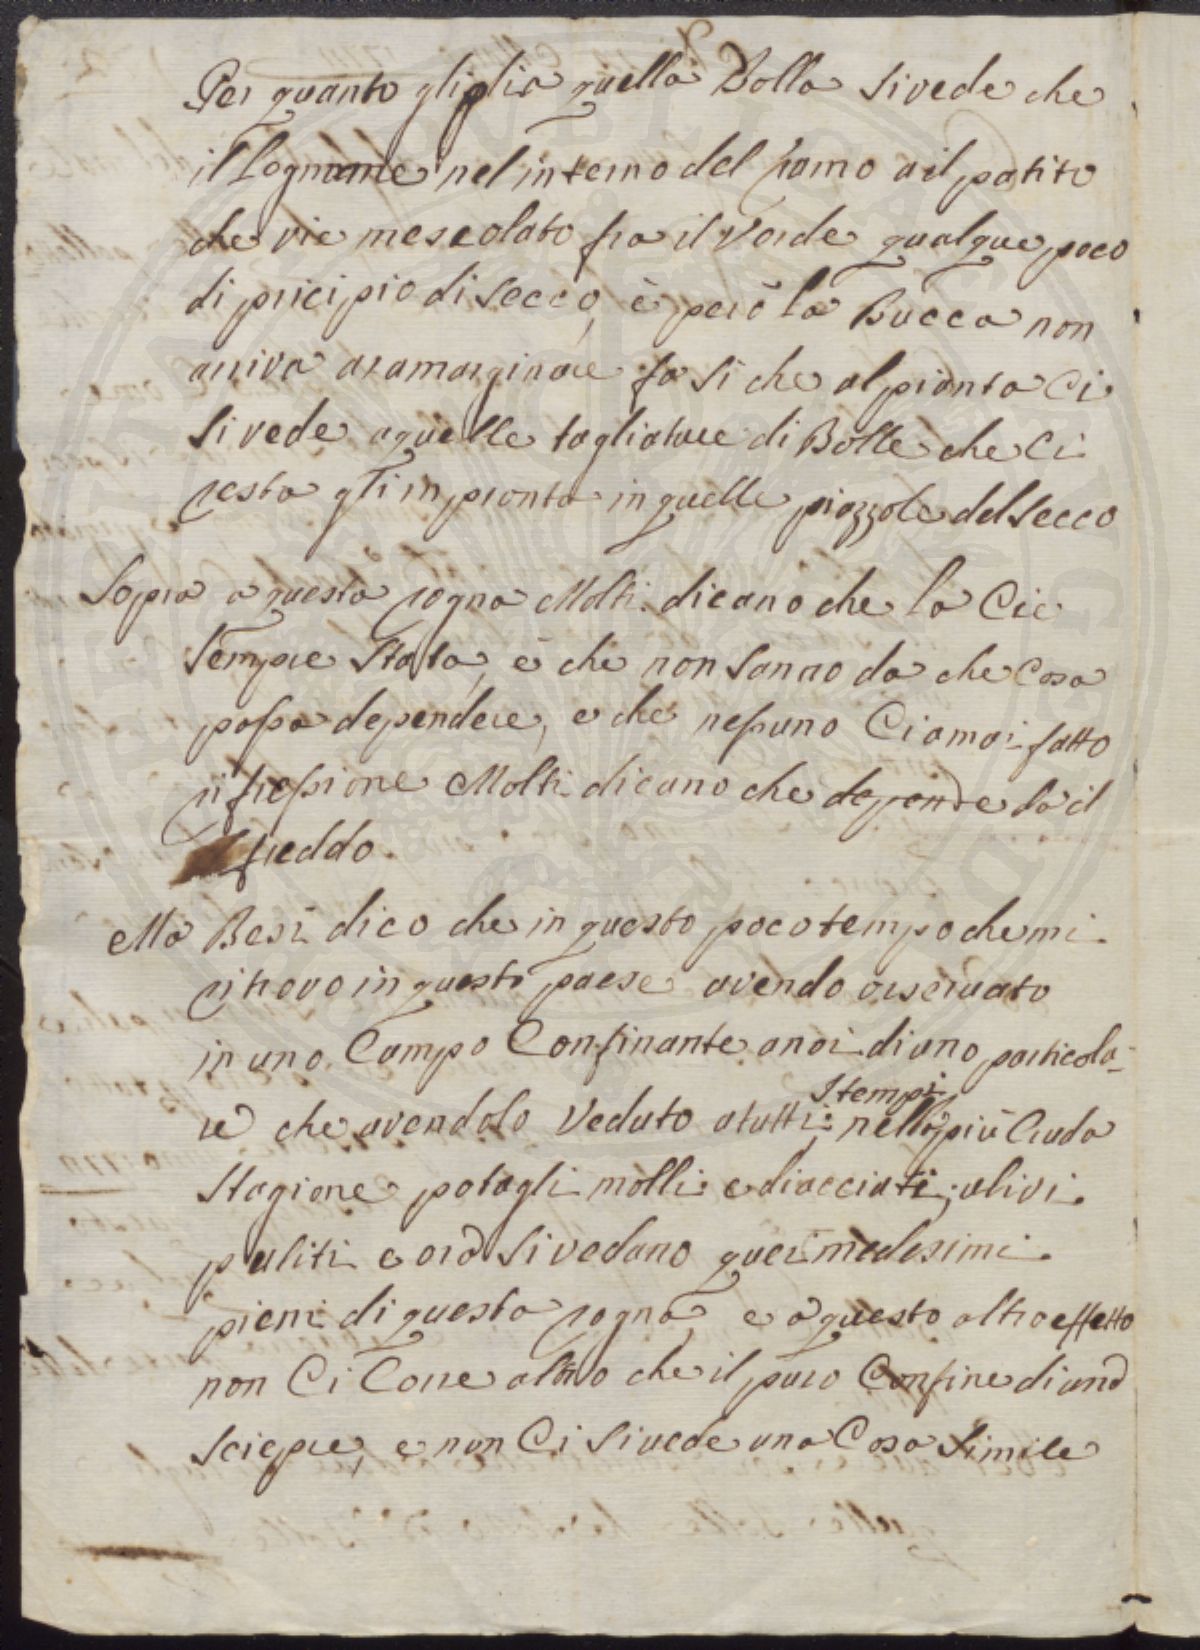 Per quanto gliplia quella Bolla Sivede che
il Legname nel interno del ramo a il patito
che vie mescolato fra il Verde qualque poco
di pricipio di Secco, è però la Bucca non
arriva aramarginare fa Si che al pianta Ci
Si vede aquelle tagliature di Bolle che Ci
resta gli in pronta in quelle piazzole del Secco
Sopra a questa rogna Molti dicano che la Cie
Sempre Stata, e che non Sanno da che Cosa
possa dependere, e che nessuno Ci a mai fatto
rifressione Molti dicano che depende da il
freddo.
Ma Besi dico che in questo poco tempo che mi
ritrovo in questo paese avendo osservato
in uno Campo Confinante a noi di uno particola-
re che avendolo Veduto a tutti I tempi nella più Cruda
Stagione potagli molli e diacciati, ulivi
puliti e ora Si vedano quei medesimi
pieni di questa rogna, e a questo altro effetto
non Ci Corre altro che il puro Confine di una
Sciepre, e non Ci Si vede una Cosa Simile
PVBLICAE